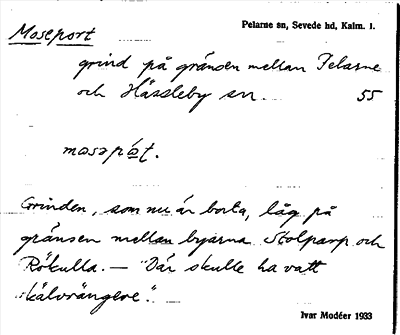 Moseport
Pelarne sn, Sevede hd, Kalm. l.
grind på gränsen mellan Pelarne
och Hässleby sn. 55
Grinden, som nu är borta, låg på
gränsen mellan byarna Stolparp och
Rökulla. — "Där skulle ha vatt
skälvrängere".
Ivar Modéer 1933